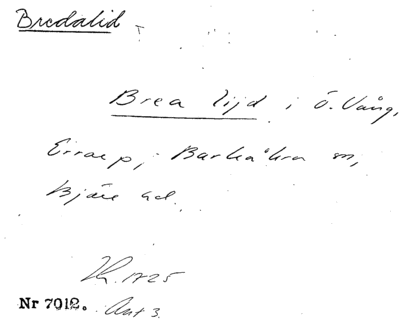 Bredalid
Brea lijd i Ö. Vång,
Errarp, Barkåkra sn,
Bjäre hd.
1725
Nr 7012. Akt 3.